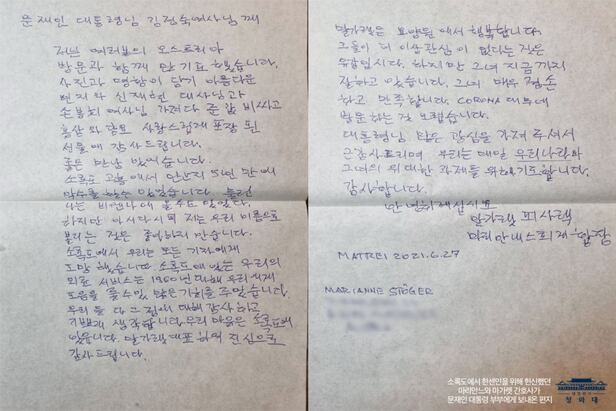 문재인 대통령님 김정숙여사님께
저는 여러분의 오스트리아
방문과 함께 만 기뻐 했습니다.
사진과 명함이 담기 아름다운
편지와 신재현 대사님과
손봉희 여사님 가져다 준
홍삼와 담요 사랑스럽게 포장 된
선물에 감사드립니다.
좋은 만남 있습니다.
소록도 고흥에서 만난지 5년 만에
악수를 할수 있었습니다.
나는 비엔나에 올수도 있었다.
하지만 아시다시피 저는 우리 이름으로
불리는 것은 좋아하지 안습니다.
소록도에서 우리는 모든 기자에게
도망 했습니다. 소록도에 있는 우리의
의료 서비스는 1960년대 우리에게
도움을 줄수있 많은 기회를 주었습니다.
우리 둘 다 그 점에 대해 감사하고
기쁘게 생각합니다. 우리 마음은 소록도에
있읍니다. 말가렛 대표하여 진심으로
감사드립니다.
말가렛은 요양원에서 행복합니다.
그들이 더 이상 관심이 없다는 것은
유감입니다. 하지만 그녀 지금까지
잘하고 있습니다. 그녀 매우 겸손
하고 만족합니다. CORONA 때문에
방문하는 것 요렵습니다.
대통령님 많은 관심을 가져 주셔서
큰감사드리며 우리는 매일 우리나라와
그녀의 위대한 과제를 위해 기도합니다.
감사합니다.
안녕히 계십시요
말가렛 피사렉
마리안내 스퇴거
MATREI 2021.6.27
MARIANNE STÖGER
소록도에서 한센인을 위해 헌신했던
마리안느와 마가렛 간호사가
문재인 대통령 부부에게 보내온 편지
대한민국
청와대